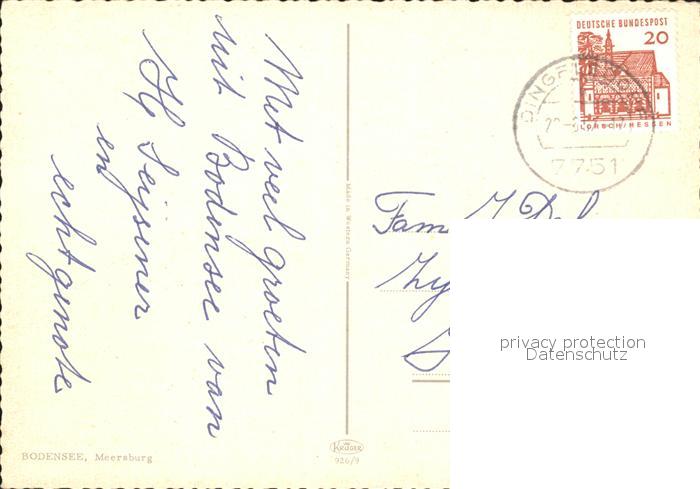 Met veel groeten
uit Bodensee van
en
echtgenote
BODENSEE, Meersburg
Made in Western Germany
KRÜGER
926/9
DEUTSCHE BUNDESPOST
20
LORSCH/HESSEN
7751
Fam
privacy protection
Datenschutz